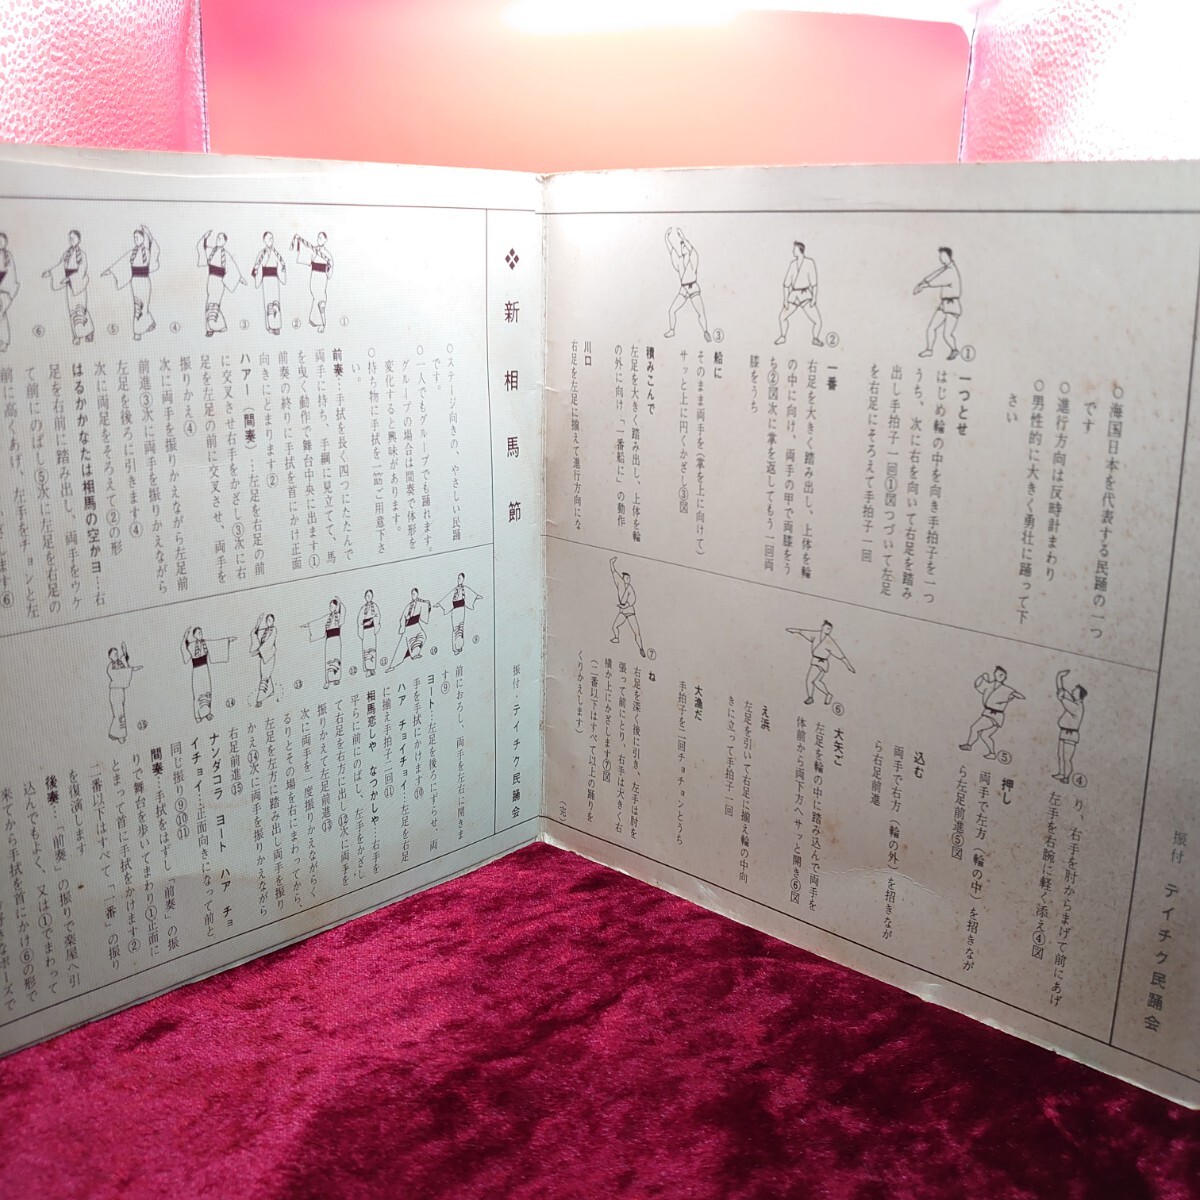 ○海国日本を代表する民踊の一つ
です
○進行方向は反時計まわり
○男性的に大きく勇壮に踊って下
さい
①
一つとせ
はじめ輪の中を向き手拍子を一つ
うち、次に右を向いて右足を踏み
出し手拍子一回①図つづいて左足
を右足にそろえて手拍子一回
②
一番
右足を大きく踏み出し、上体を輪
の中に向け、両手の甲で両膝をう
ち②図次に掌を返してもう一回両
膝をうち
③
船に
そのまま両手を(掌を上に向けて)
サッと上に円くかざし③図
積みこんで
左足を大きく踏み出し、上体を輪
の外に向け、「一番船に」の動作
川口
右足を左足に揃えて進行方向にな
振付 テイチク民踊会
④
り、右手を肘からまげて前にあげ
左手を右腕に軽く添え④図
⑤
押し
両手で左方(輪の中)を招きなが
ら左足前進⑤図
込む
両手で右方(輪の外)を招きなが
ら右足前進
⑥
大矢ご
左足を輪の中に踏み込んで両手を
体前から両下方へサッと開き⑥図
え浜
左足を引いて右足に揃え輪の中向
きに立って手拍子一回
大漁だ
手拍子を二回チョチョンとうち
⑦
ね
右足を深く後に引き、左手は肘を
張って前にとり、右手は大きく右
横か上にかざします⑦図
(二番以下はすべて以上の踊りを
くりかえします)
(完)
❖新相馬節
振付・テイチク民踊会
○ステージ向きの、やさしい民踊
です。
○一人でもグループでも踊れます。
グループの場合は間奏で体形を
変化すると興味があります。
○持ち物に手拭を一筋ご用意下さ
い。
①
前奏…手拭を長く四つにたたんで
両手に持ち、手綱に見立てて、馬
を曳く動作で舞台中央に出ます①
②
前奏の終りに手拭を首にかけ正面
向きにとまります②
③
ハアー(間奏)…左足を右足の前
に交叉させ右手をかざし③次に右
足を左足の前に交叉させ、両手を
振りかえ④
④
次に両手を振りかえながら左足前
前進③次に両手を振りかえながら
左足を後ろに引きます④
⑤
次に両足をそろえて②の形
はるかかなたは相馬の空かヨ…右
足を右前に踏み出し、両手をウケ
⑥
て前にのばし⑤次に左足を右足の
前に高くあげ、左手をチョンと左
前におろし、両手を左右に開きま
す⑨
⑨
ヨート…左足を後ろにずらせ、両
手を手拭にかけます⑩
⑩
ハア チョイチョイ…左足を右足
に揃え手拍子二回⑪
⑪
相馬恋しや なつかしや…右手を
平らに前にのばし、左手をかざし
⑫
て右足を右方に出し⑫次に両手を
振りかえて左足前進⑬
次に両手を一度振りかえながらく
るりとその場を右にまわってから、
⑬
左足を左方に踏み出し両手を振り
かえ⑭次に両手を振りかえながら
右足前進⑮
⑭
ナンダコラ ヨート ハア チョ
イチョイ…正面向きになって前と
同じ振り⑨⑩⑪
⑮
間奏…手拭をはずし「前奏」の振
りで舞台を歩いてまわり①正面に
とまって首に手拭をかけます②
二番以下はすべて「一番」の振り
を復演します
後奏…「前奏」の振りで楽屋へ引
込んでもよく、又は①でまわって
来てから手拭を首にかけ⑥の形で